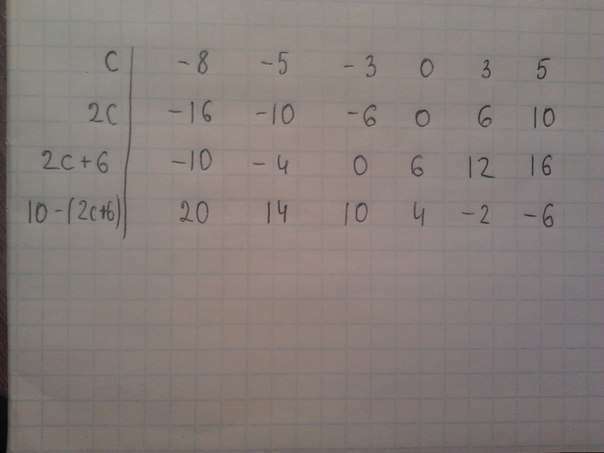 c | -8 -5 -3 0 3 5
2c | -16 -10 -6 0 6 10
2c+6 | -10 -4 0 6 12 16
10-(2c+6) | 20 14 10 4 -2 -6